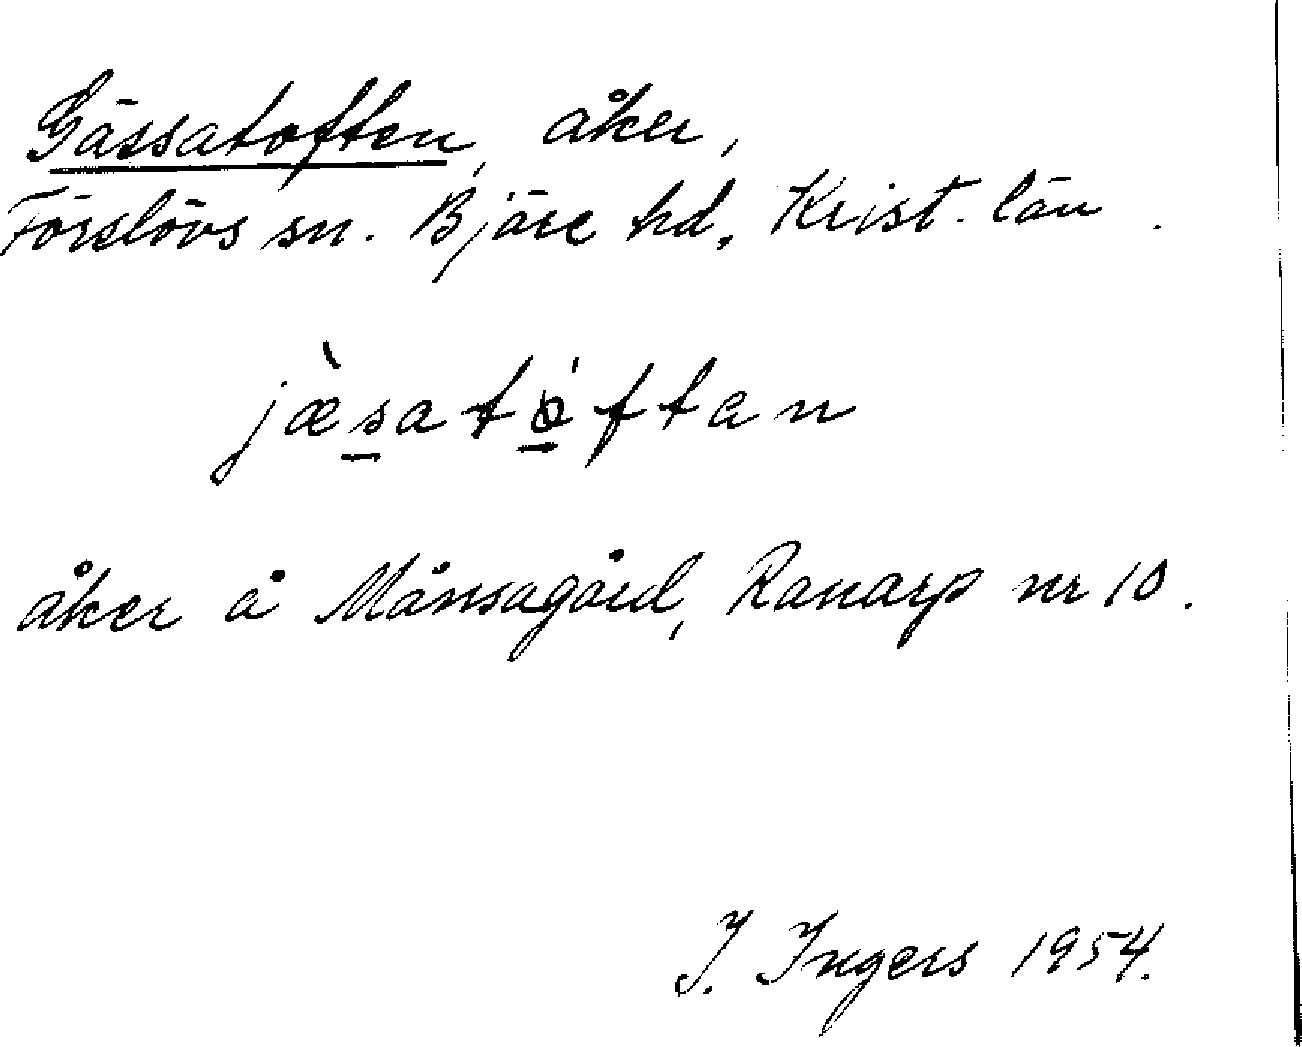 Gässatoften, åker,
Förslövs sn. Bjäre hd, Krist. län.
jæ̀satóftan
åker å Månsagård, Ranarp nr 10.
I. Ingers 1954.